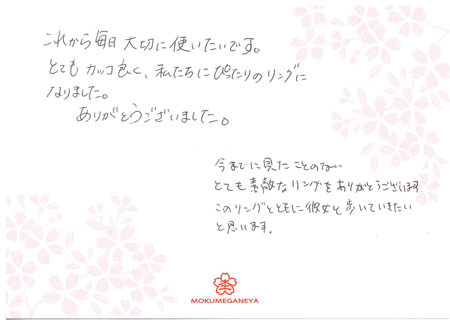 これから毎日大切に使いたいです。
とてもカッコ良く、私たちにぴったりのリングに
なりました。
ありがとうございました。
今までに見たことのない
とても素敵なリングをありがとうございます
このリングとともに彼女と歩いていきたい
と思います。
MOKUMEGANEYA